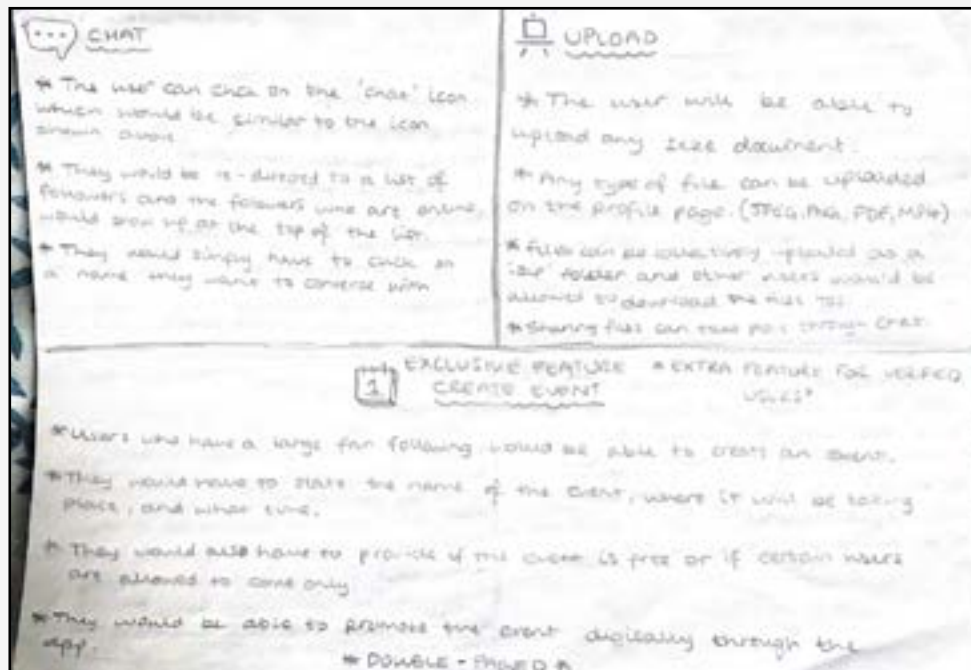 CHAT
* The user can click on the 'chat' icon
which would be similar to the icon
shown above
* They would be re-directed to a list of
followers and the followers who are online,
would show up at the top of the list.
* They would simply have to click on
a name they want to converse with
UPLOAD
* The user will be able to
upload any size document.
* Any type of file can be uploaded
on the profile page. (JPEG, PNG, PDF, MP4)
* Files can be collectively uploaded as a
'zip' folder and other users would be
allowed to download the files too.
* Sharing files can take place through chat.
1
EXCLUSIVE FEATURE * EXTRA FEATURE FOR VERIFIED
CREATE EVENT USERS*
* Users who have a large fan following would be able to create an event.
* They would have to state the name of the event, where it will be taking
place, and what time.
* They would also have to provide if the event is free or if certain users
are allowed to come only
* They would be able to promote the event digitally through the
app.
* DOUBLE-PAGED *